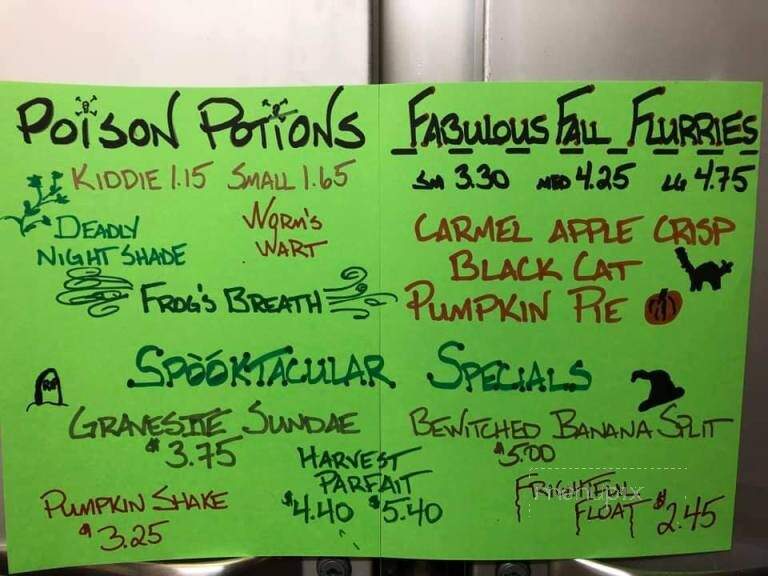 POISON POTIONS
KIDDIE 1.15 SMALL 1.65
DEADLY
NIGHT SHADE
WORM'S
WART
FROG'S BREATH
FABULOUS FALL FLURRIES
SM 3.30 MED 4.25 LG 4.75
CARMEL APPLE CRISP
BLACK CAT
PUMPKIN PIE
SPOOKTACULAR SPECIALS
RIP
GRAVESITE SUNDAE
$3.75
BEWITCHED BANANA SPLIT
$5.00
HARVEST
PARFAIT
$4.40 $5.40
PUMPKIN SHAKE
$3.25
FLOAT $2.45